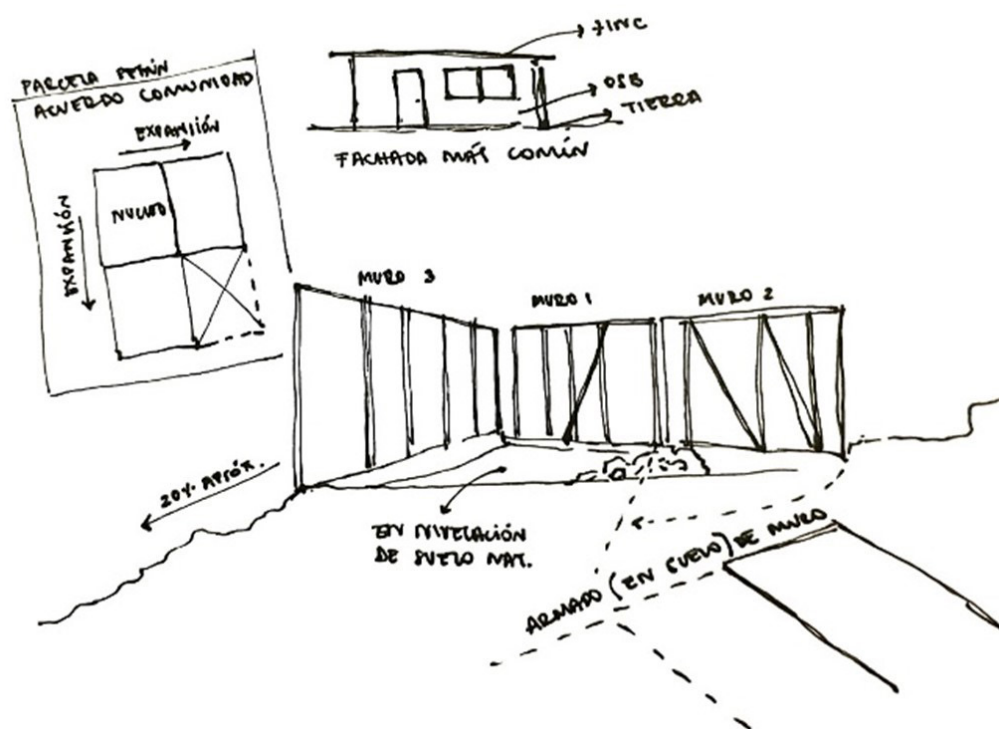 PARCELA SEGÚN
ACUERDO COMUNIDAD
EXPANSIÓN
NUCLEO
EXPANSIÓN
ZINC
OSB
TIERRA
FACHADA MÁS COMÚN
MURO 3
MURO 1
MURO 2
20% APROX.
EN NIVELACIÓN
DE SUELO NAT.
ARMADO (EN SUELO) DE MURO